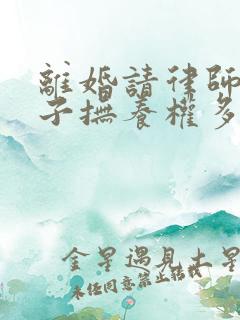 離婚請律師
子撫養權多
金星遇見土星
未任同意禁止转载